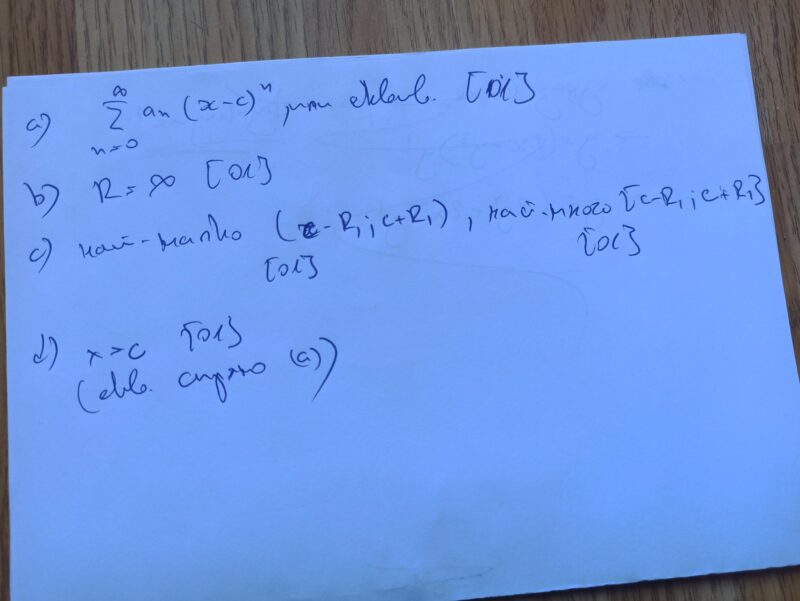 a) ∞∑n=0 an (x-c)^n или еквив. [01]
b) R=∞ [01]
c) най-малко (c-R1; c+R1), най-много [c-R1; c+R1]
[01] [01]
d) x>c [01]
(екв. спрямо (a))